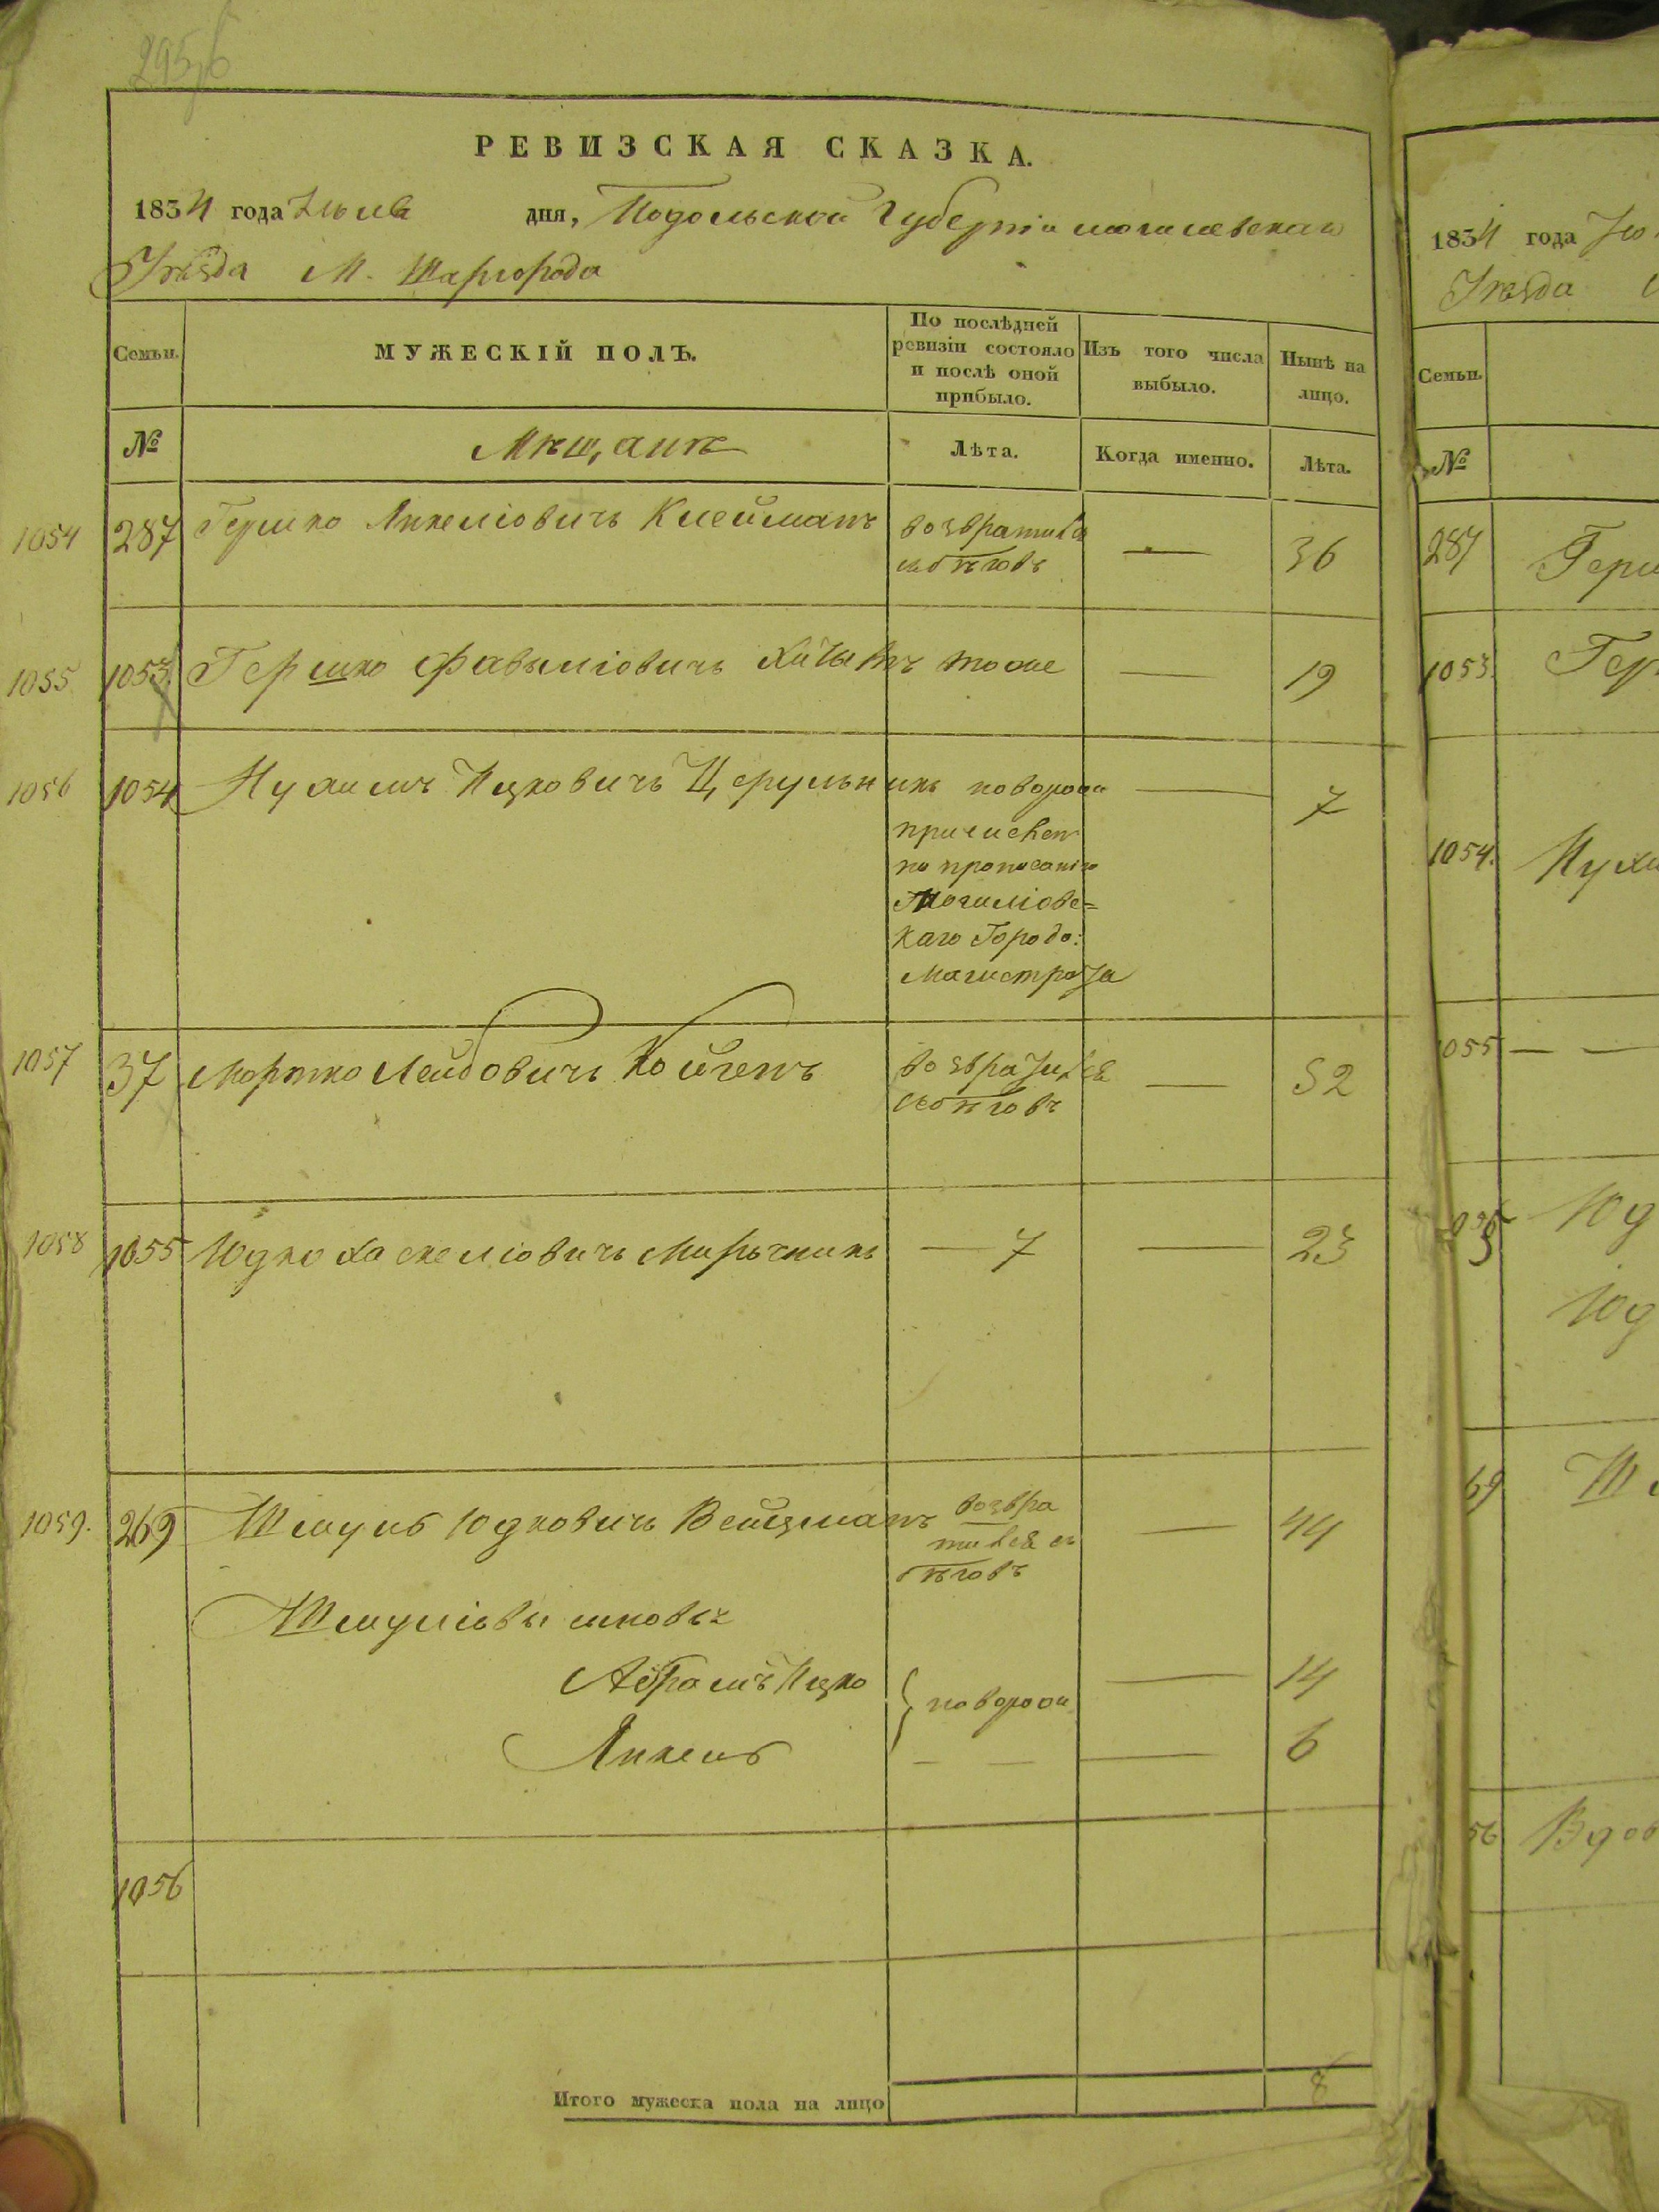 295
РЕВИЗСКАЯ СКАЗКА.
1834 года Іюня дня, Подольской Губерніи могилевскаго
Уѣзда М. Шаргорода
Семьи.
МУЖЕСКІЙ ПОЛЪ.
По послѣдней ревизіи состояло и послѣ оной прибыло.
Изъ того числа выбыло.
Нынѣ на лицо.
№
Мѣщанѣ
Лѣта.
Когда именно.
Лѣта.
1054 287 Гершко Янкеліовичъ Клейманъ возвратился — 36
съ бѣговъ
1055 1053 Гершко тоже — 19
1056 1054 Нухимъ Ицковичъ Церульникъ — 7
причислен
по прописанію
Могиліовс=
каго Городо:
Магистрата
1057 37 Мортко Лейбовичъ Койгенъ возвратился — 52
съ бѣговъ
1058 1055 Юдко Хаскеліовичъ Мирочникъ — 7 — 23
1059. 269 Шмуль Юдковичъ Вейцманъ возвра — 44
тился съ
бѣговъ
Шмуліовы сыновья
Абрамъ Ицко — 14
Янкель — — — 6
1056
Итого мужеска пола на лицо 8
1834 года
Уѣзда
Семьи.
№
287
1053.
1054.
1055 — —
Юд
Юд
69
56 Вдов